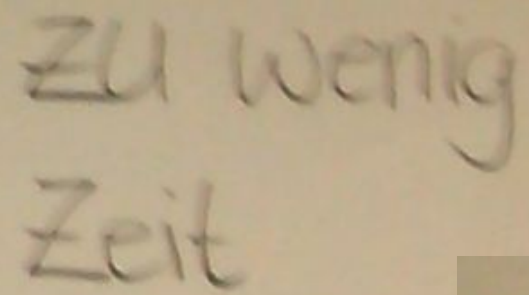 zu wenig
Zeit